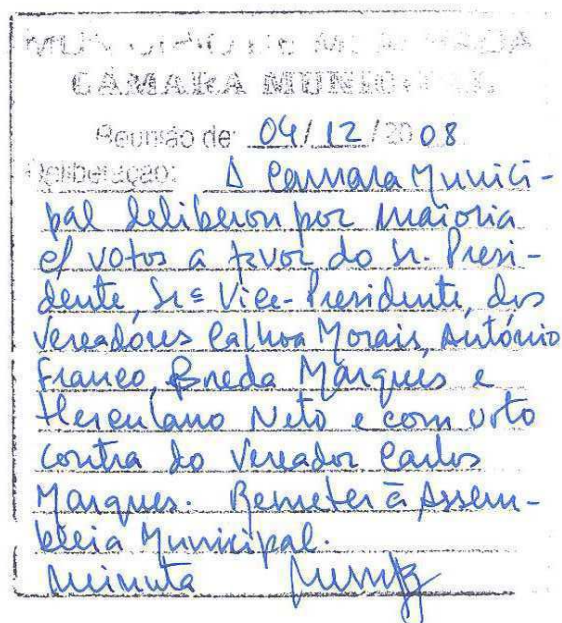 CÂMARA MUNICIPAL
Reunião de: 04/12/2008
Deliberação: A Camara Munici-
pal deliberou por maioria
c/ votos a favor do Sr. Presi-
dente, Srª Vice-Presidente, dos
Vereadores Calhoa Morais, António
Franco, Breda Marques e
Herculano Neto e com voto
contra do Vereador Carlos
Marques. Remeter à Assem-
bleia Municipal.
Minuta